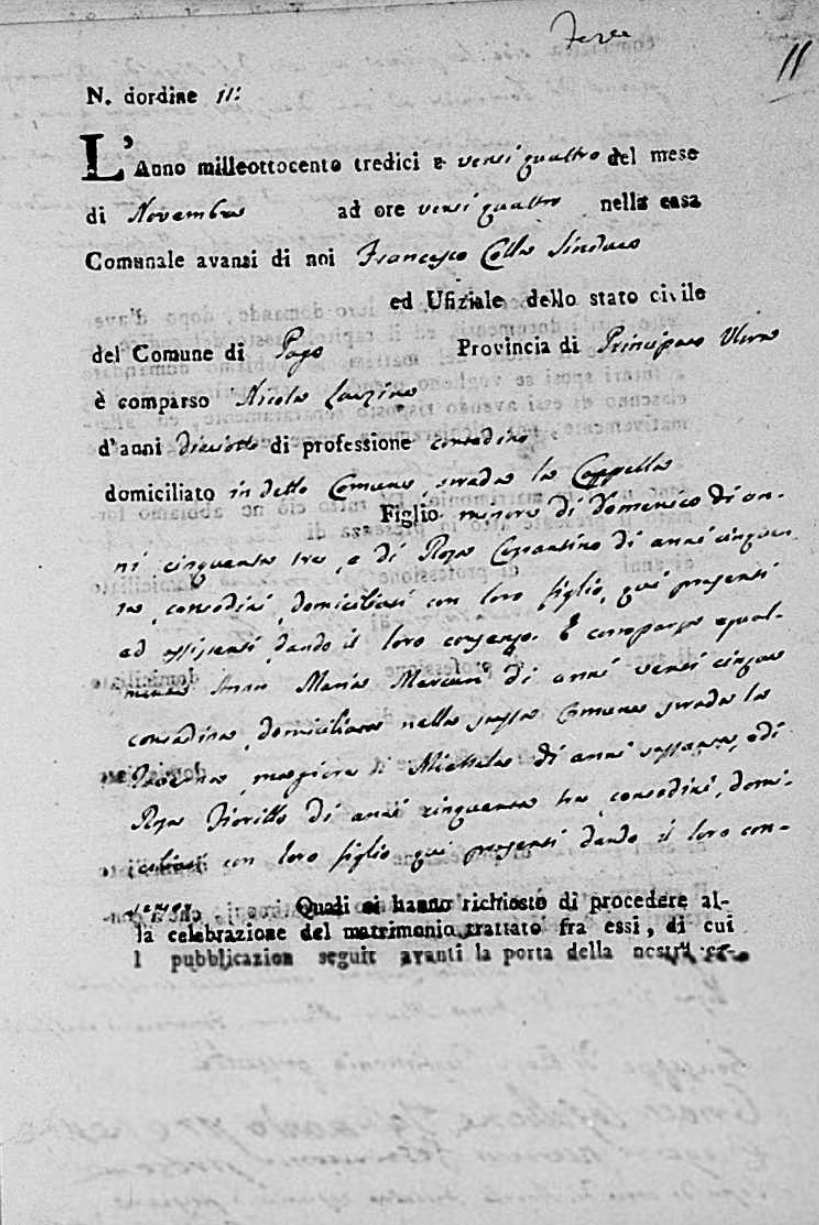 11
N. dordine 11:
L'Anno milleottocento tredici e venti quattro del mese
di Novembre ad ore venti quattro nella casa
Comunale avanti di noi Francesco Colle Sindaco
ed Ufiziale dello stato civile
del Comune di Pago Provincia di Principato Ultra
è comparso Nicola
d'anni dieciotto di professione contadino
domiciliato in detto Comune, strada la Cappella
Figlio minore di Domenico di an-
ni cinquanta tre, e di Rosa Cossantino di anni cinquan
ta, contadini, domiciliati con loro figlio, qui presenti
ad assistenti, dando il loro consenso. E comparsa equal-
mente Anna Maria Marcun di anni venti cinque
contadina, domiciliata nella stessa Comune strada la
Taverna, magiore di Michele di anni sessanta, e di
Rosa Fiorillo di anni cinquanta tre, contadini, domi-
ciliati con loro figlio qui presenti dando il loro con-
senso. Quali si hanno richiesto di procedere al-
la celebrazione del matrimonio trattato fra essi, di cui
l pubblicazion seguit avanti la porta della nostra ca-